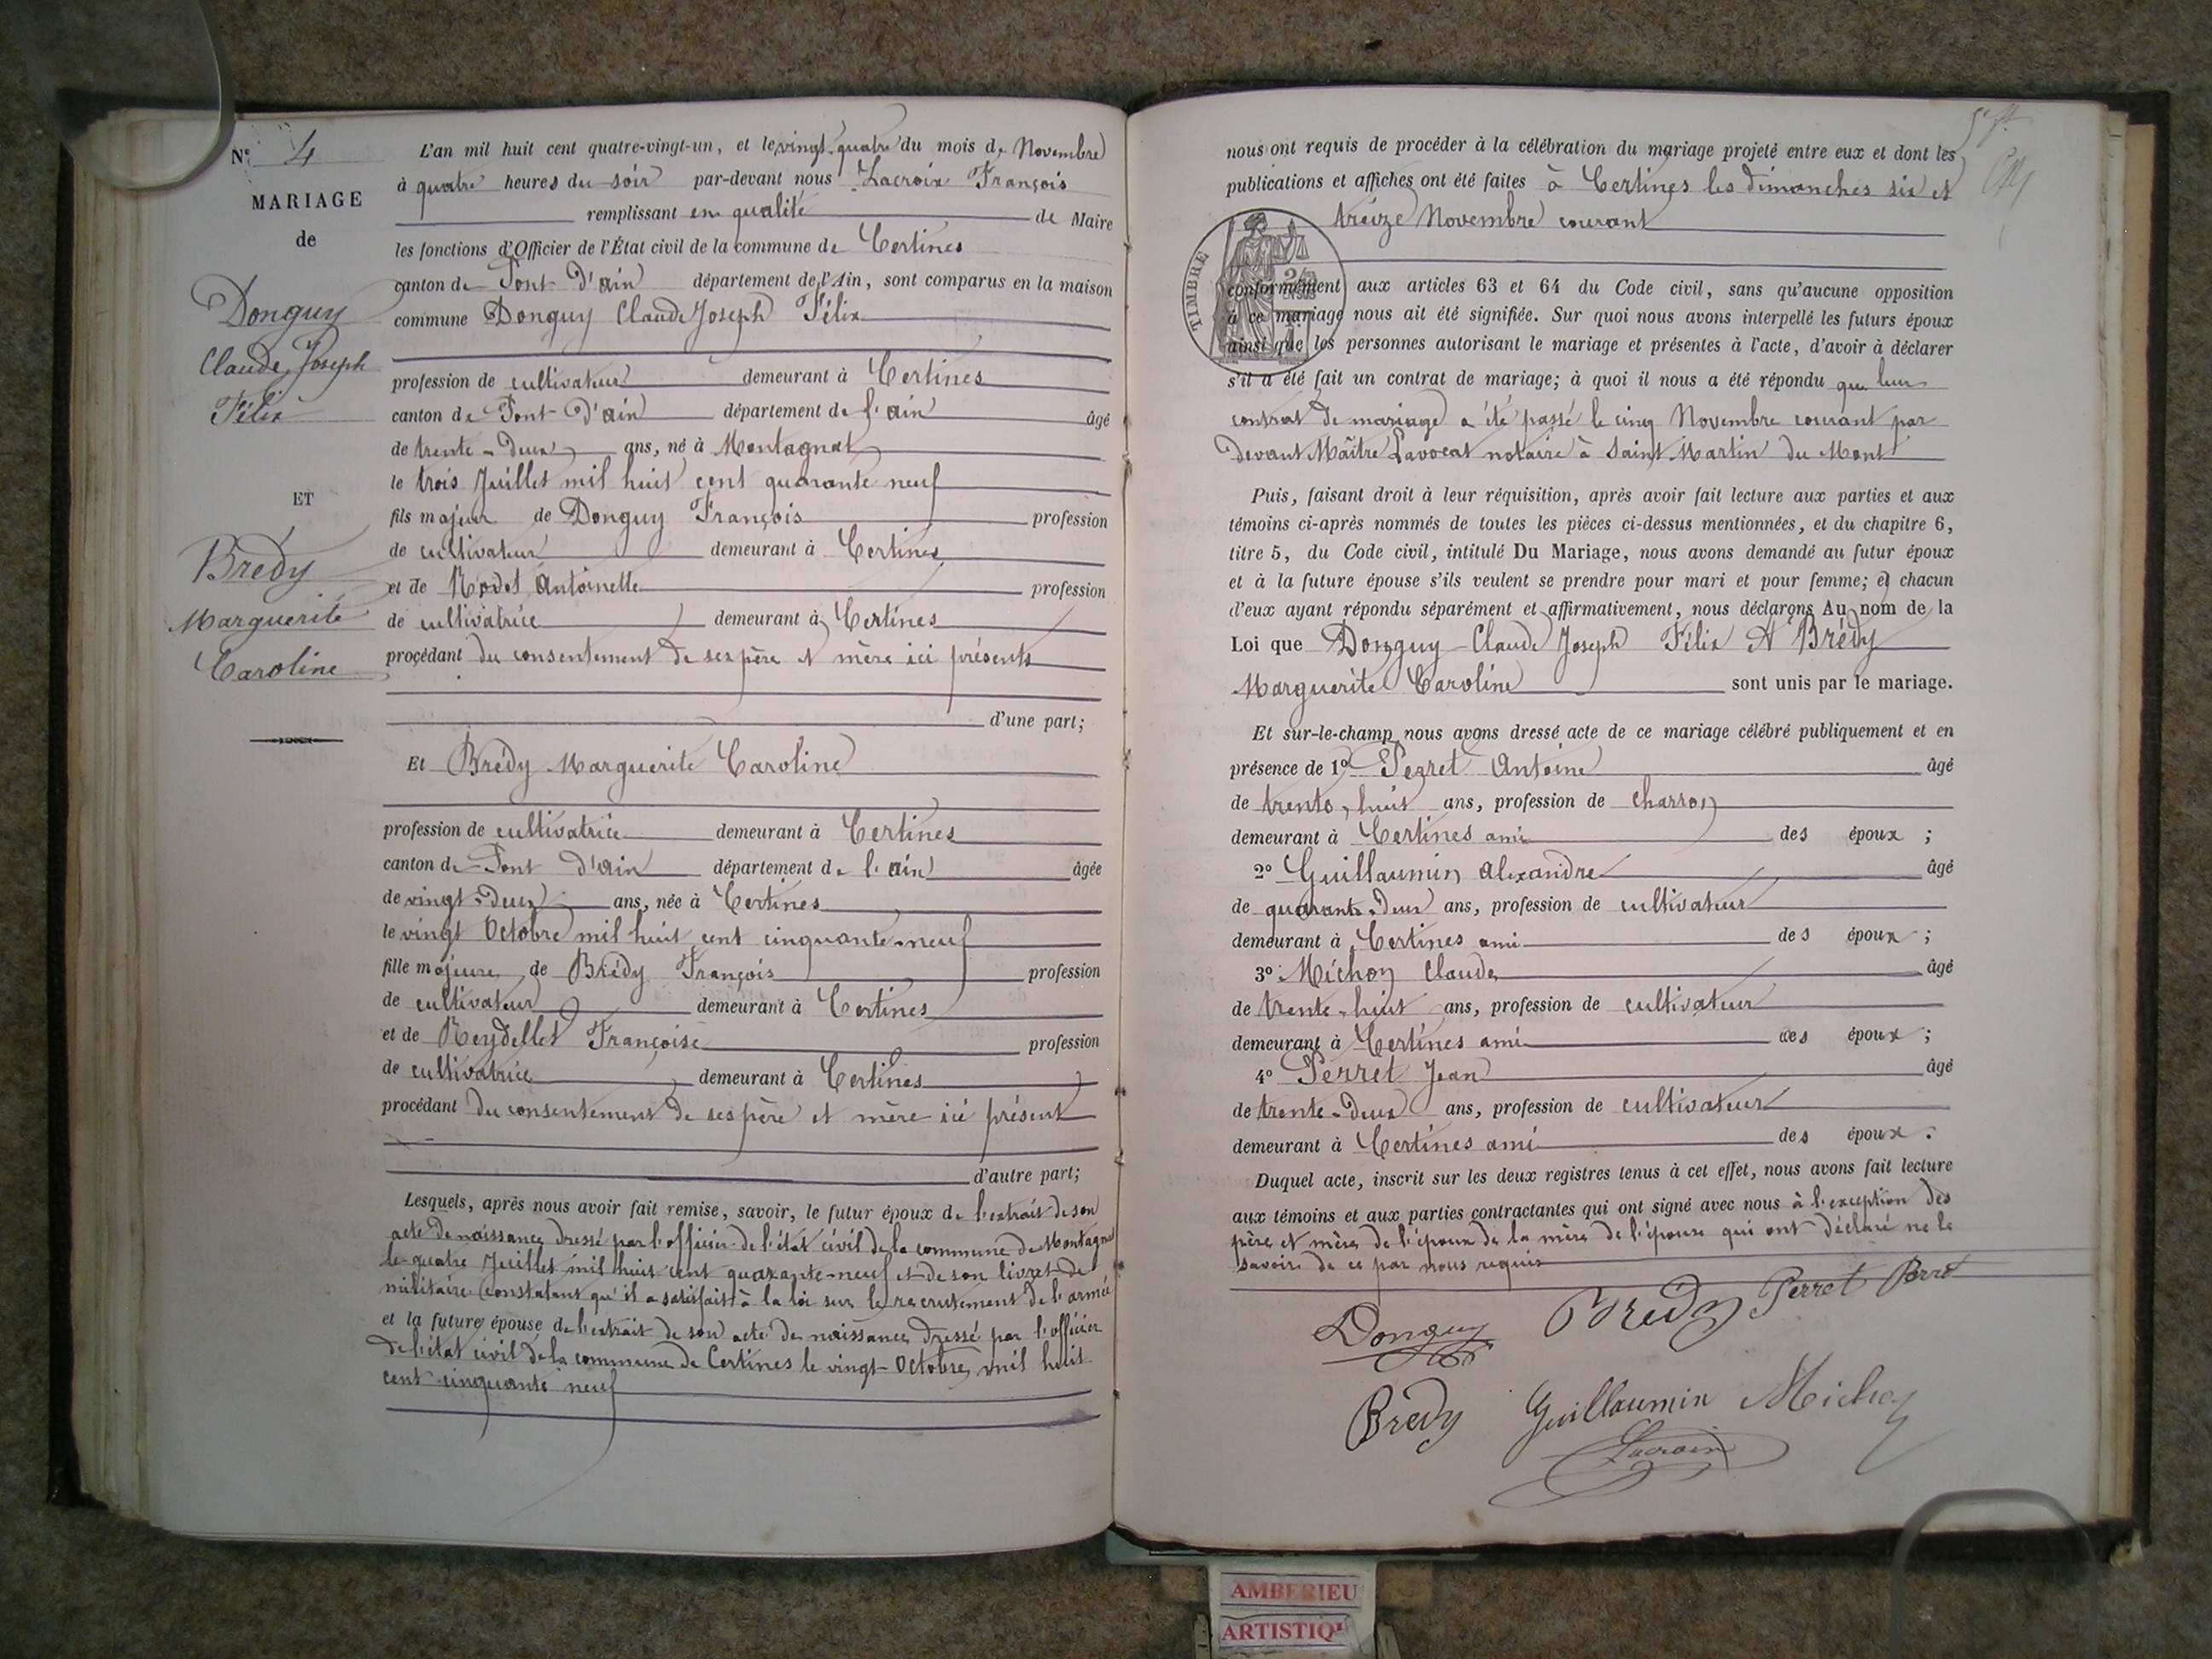 N° 4
MARIAGE
de
Donguy
Claude Joseph
Félix
ET
Brédy
Marguerite
Caroline
L'an mil huit cent quatre-vingt-un, et le vingt-quatre du mois de Novembre
à quatre heures du soir par-devant nous Lacroix François
remplissant en qualité de Maire
les fonctions d'Officier de l'État civil de la commune de Certines
canton de Pont-D'ain département de l'Ain, sont comparus en la maison
commune Donguy Claude Joseph Félix
profession de cultivateur demeurant à Certines
canton de Pont-D'ain département de l'ain âgé
de trente-Deux ans, né à Montagnat
le trois Juillet mil huit cent quarante neuf
fils majeur de Donguy François profession
de cultivateur demeurant à Certines
et de Rodet Antoinette profession
de cultivatrice demeurant à Certines
procédant du consentement de ses père et mère ici présents
d'une part;
Et Brédy Marguerite Caroline
profession de cultivatrice demeurant à Certines
canton de Pont D'ain département de l'ain âgée
de vingt-Deux ans, née à Certines
le vingt Octobre mil huit cent cinquante-neuf
fille majeure de Brédy François profession
de cultivateur demeurant à Certines
et de Reydellet Françoise profession
de cultivatrice demeurant à Certines
procédant du consentement de ses père et mère ici présent
d'autre part;
Lesquels, après nous avoir fait remise, savoir, le futur époux de l'extrait de son
acte de naissance dressé par l'officier de l'état civil de la commune de Montagnat
le quatre Juillet mil huit cent quarante-neuf et de son livret de
militaire constatant qu'il a satisfait à la loi sur le recrutement de l'armée
et la future épouse de l'extrait de son acte de naissance dressé par l'officier
de l'état civil de la commune de Certines le vingt-Octobre mil huit
cent cinquante neuf
nous ont requis de procéder à la célébration du mariage projeté entre eux et dont les
publications et affiches ont été faites à Certines les dimanches six et
treize Novembre courant
TIMBRE
conformément aux articles 63 et 64 du Code civil, sans qu'aucune opposition
à ce mariage nous ait été signifiée. Sur quoi nous avons interpellé les futurs époux
ainsi que les personnes autorisant le mariage et présentes à l'acte, d'avoir à déclarer
s'il a été fait un contrat de mariage; à quoi il nous a été répondu que leur
contrat de mariage a été passé le cinq Novembre courant par
Devant Maître Lavocat notaire à Saint Martin du Mont
Puis, faisant droit à leur réquisition, après avoir fait lecture aux parties et aux
témoins ci-après nommés de toutes les pièces ci-dessus mentionnées, et du chapitre 6,
titre 5, du Code civil, intitulé Du Mariage, nous avons demandé au futur époux
et à la future épouse s'ils veulent se prendre pour mari et pour femme; et chacun
d'eux ayant répondu séparément et affirmativement, nous déclarons Au nom de la
Loi que Donguy Claude Joseph Félix Et Brédy
Marguerite Caroline sont unis par le mariage.
Et sur-le-champ nous avons dressé acte de ce mariage célébré publiquement et en
présence de 1° Perret Antoine âgé
de trente-huit ans, profession de charron
demeurant à Certines ami des époux ;
2° Guillaumin Alexandre âgé
de quarante-Deux ans, profession de cultivateur
demeurant à Certines ami des époux ;
3° Michon Claude âgé
de trente-huit ans, profession de cultivateur
demeurant à Certines ami des époux ;
4° Perret Jean âgé
de trente-Deux ans, profession de cultivateur
demeurant à Certines ami des époux.
Duquel acte, inscrit sur les deux registres tenus à cet effet, nous avons fait lecture
aux témoins et aux parties contractantes qui ont signé avec nous à l'exception des
père et mère de l'époux de la mère de l'épouse qui ont déclaré ne le
savoir de ce par nous requis
Donguy Brédy Perret Perret
Brédy Guillaumin Michon
Lacroix
AMBERIEU
ARTISTIQ